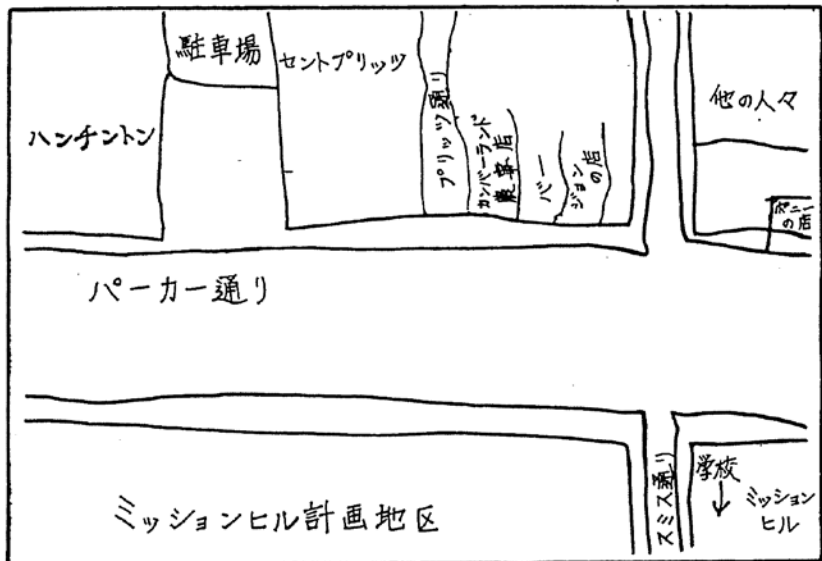 駐車場
セントプリッツ
ハンチントン
プリッツ通り
カンバーランド
農事店
バー
ジョン
の店
他の人々
の店
パーカー通り
ミッションヒル計画地区
スミス通り
学校
↓
ミッション
ヒル